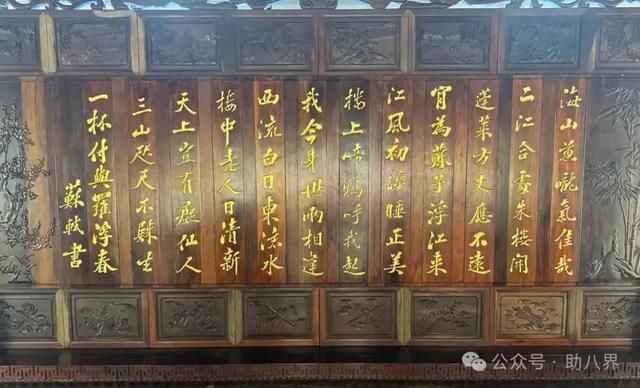 海山葱曨氣佳哉
二江合處朱樓開
蓬萊方丈應不遠
肯為蘇子浮江來
江風初涼睡正美
樓上啼鴉呼我起
我今身世兩相違
西流白日東流水
樓中老人日清新
天上豈有癡仙人
三山咫尺不歸去
一杯付與羅浮春
蘇軾書
公众号·助八界